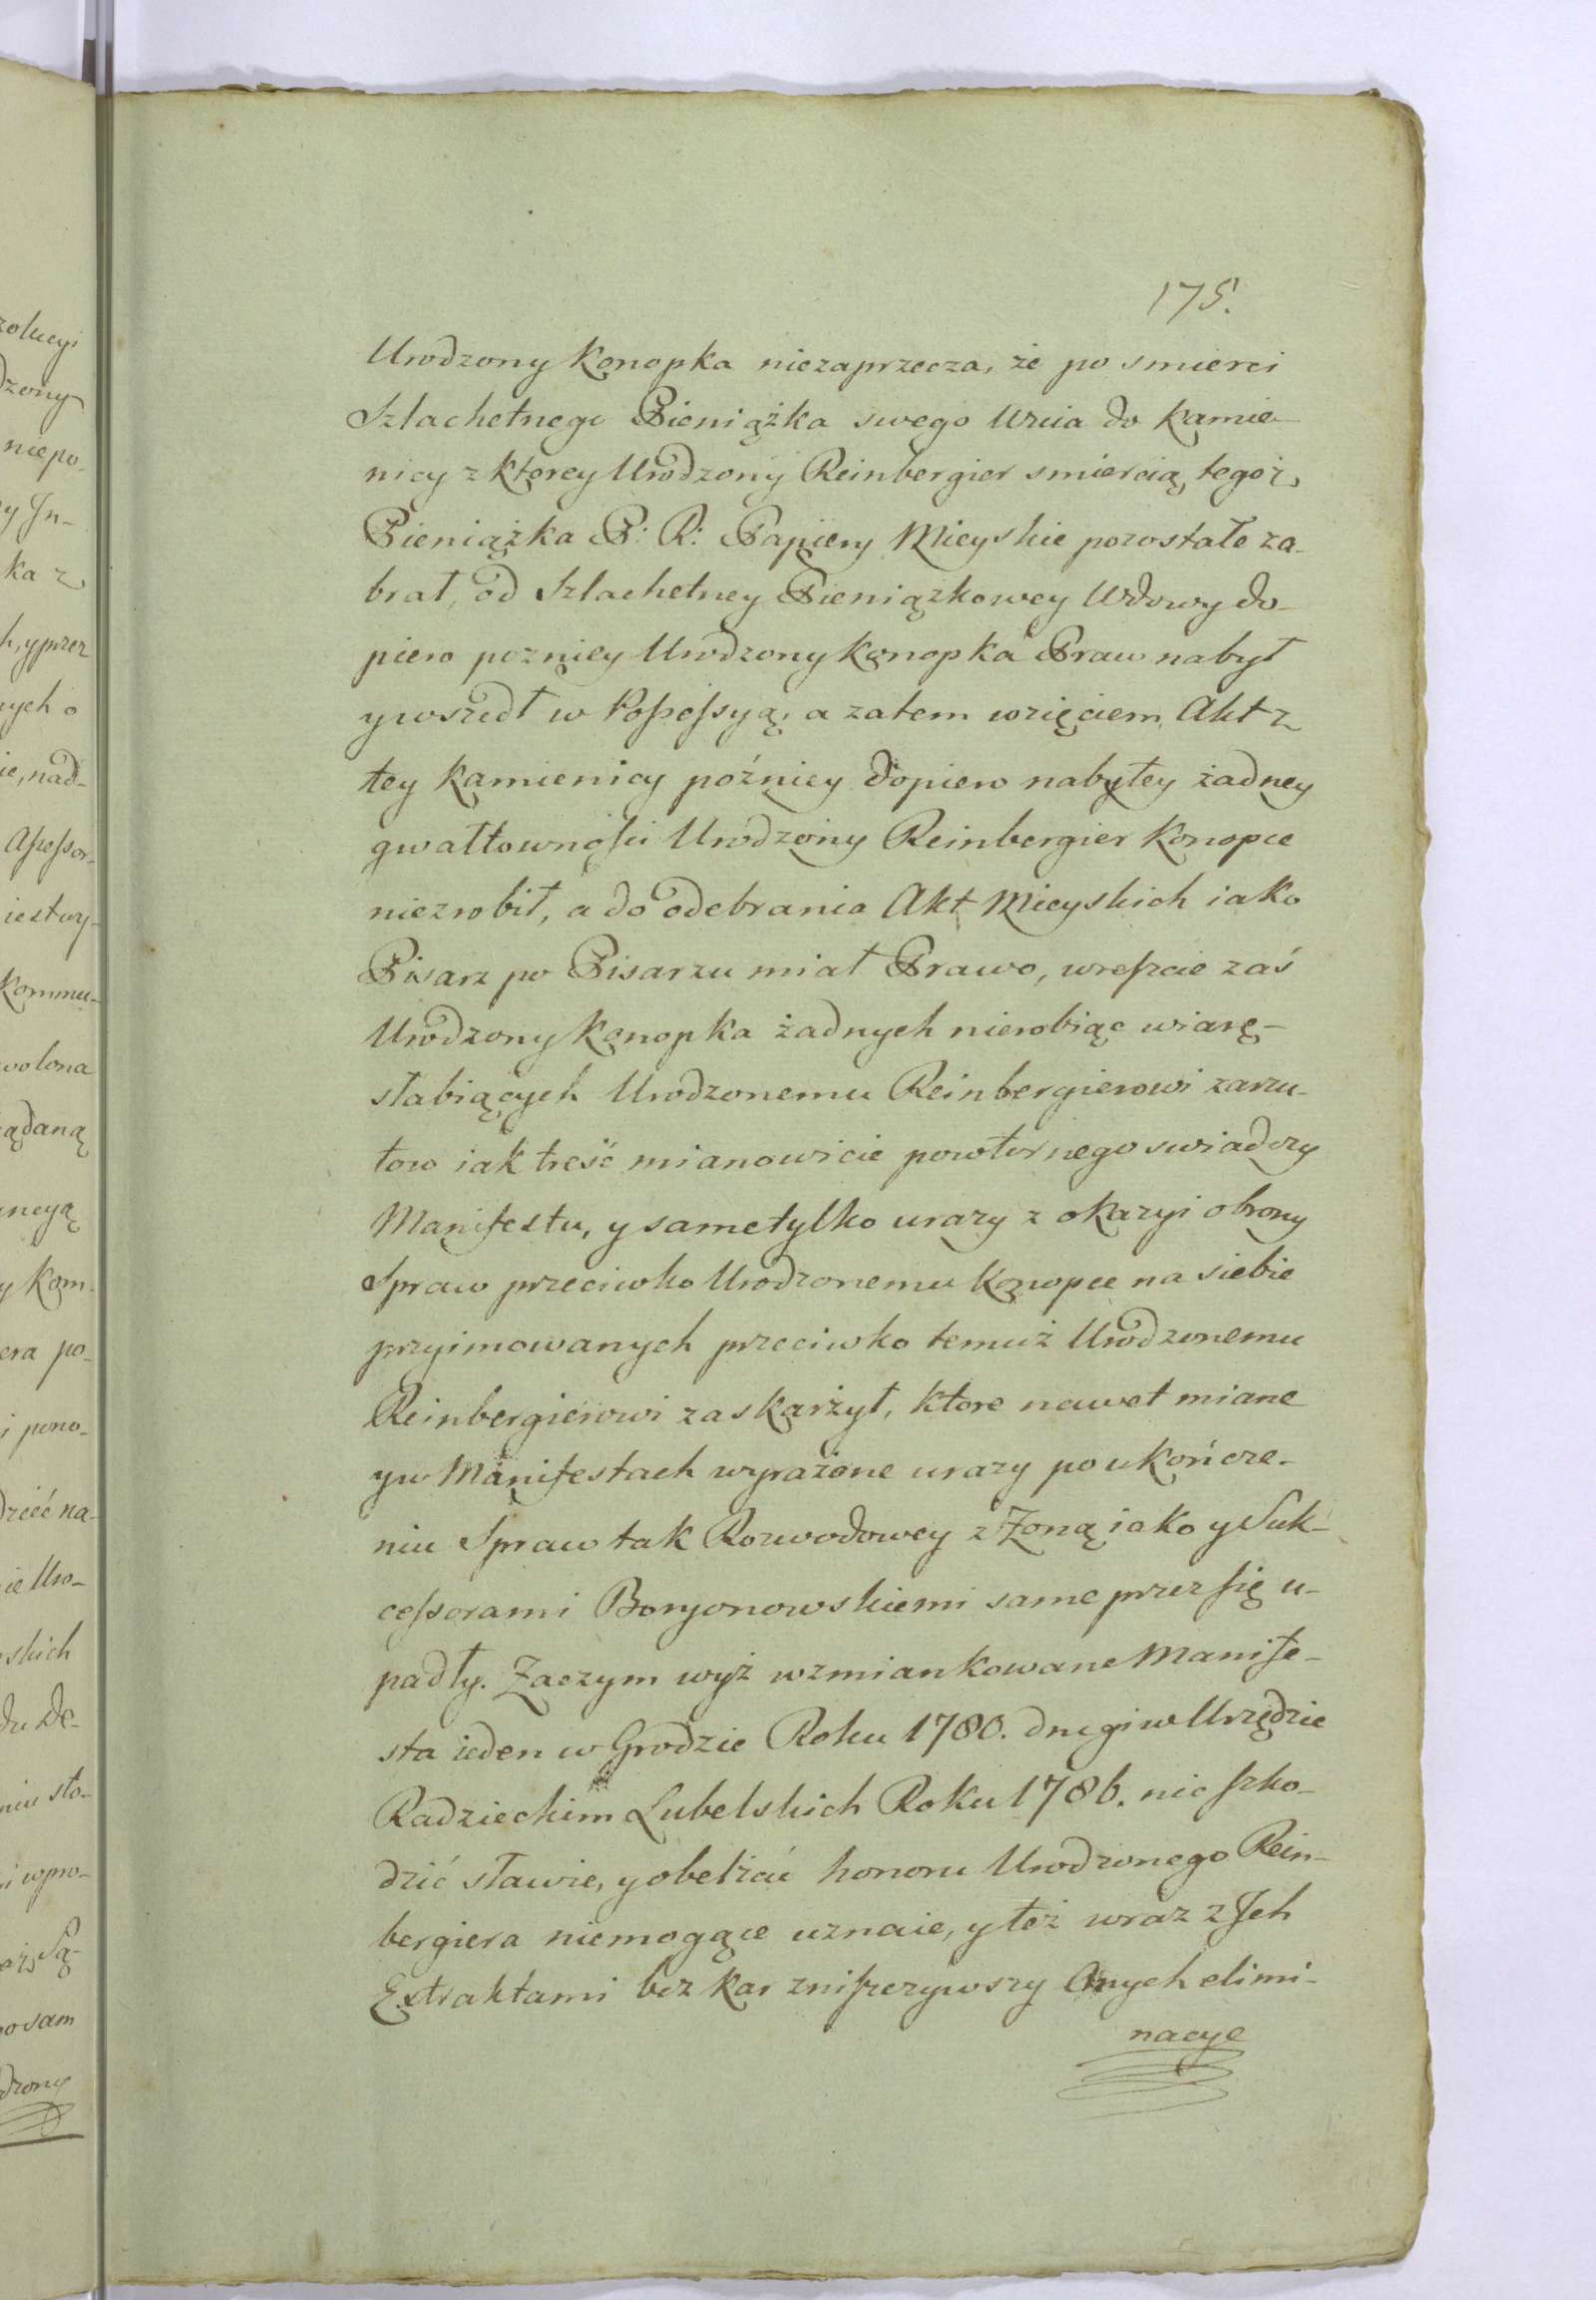 175.
Urodzony Konopka niezaprzecza, że po smierci
Szlachetnego Pieniążka swego Wuia do Kamie-
nicy z ktorey Urodzony Reinbergier smiercią tegoż
Pieniążka P: R: Papiery Mieyskie pozostałe za-
brał, od Szlachetney Pieniążkowey Wdowy do-
piero pozniey Urodzony Konopka Praw nabył
y wszedł w Possessyą, a zatem wzięciem Akt z
tey Kamienicy poźniey dopiero nabytey żadney
gwałtownosci Urodzony Reinbergier Konopce
niezrobił, a do odebrania Akt Mieyskich iako
Pisarz po Pisarzu miał Prawo, wreszcie zaś
Urodzony Konopka żadnych nierobiąc wiarę-
słabiących Urodzonemu Reinbergierowi zarzu-
tow iak treść mianowicie powtornego swiadczy
Manifestu, y same tylko urazy z okazyi obrony
Spraw przeciwko Urodzonemu Konopce na siebie
przyimowanych przeciwko temuż Urodzonemu
Reinbergierowi zaskarżył, ktore nawet miane
y w Manifestach wyrażone urazy po ukończe-
niu Spraw tak Rozwodowey z Zoną iako y Suk-
cessorami Boryonowskiemi same przez się u-
padły. Zaczym wyż wzmiankowane Manife-
sta ieden w Grodzie Roku 1780. drugi w Urzędzie
Radzieckim Lubelskich Roku 1786. nic szko-
dzić sławie, y obelżać honoru Urodzonego Rein-
bergiera niemogące uznaie, y też wraz z Jch
Extraktami bez kar zniszczywszy Onych elimi-
nacye
zolucyi
dzony
niepo-
y Jn-
ka z
h, y przez
nych o
ie, nad-
Assessor-
iest wy-
Kommu-
wolona
żądaną
ncyą
y Kom-
era po-
i pono-
dzieć na-
ie Uro-
skich
du De-
niu sto-
i wpro-
Są-
o sam
dzony